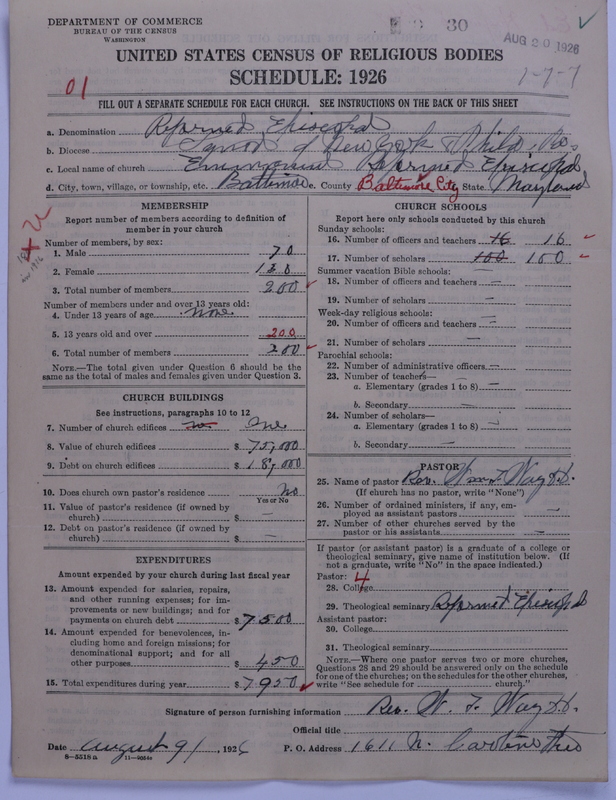 DEPARTMENT OF COMMERCE
BUREAU OF THE CENSUS
WASHINGTON
30
AUG 20 1926
UNITED STATES CENSUS OF RELIGIOUS BODIES
SCHEDULE: 1926
1-7-7
01
FILL OUT A SEPARATE SCHEDULE FOR EACH CHURCH. SEE INSTRUCTIONS ON THE BACK OF THIS SHEET
a. Denomination Reformed Episcopal
b. Diocese Synod of New York & Phila.
c. Local name of church Emmanuel Reformed Episcopal
d. City, town, village, or township, etc. Baltimore e. County Baltimore City State Maryland
MEMBERSHIP
Report number of members according to definition of
member in your church
Number of members, by sex:
1. Male 70
2. Female 130
3. Total number of members 200
Number of members under and over 13 years old:
4. Under 13 years of age none
5. 13 years old and over 200
6. Total number of members 200
NOTE.—The total given under Question 6 should be the
same as the total of males and females given under Question 3.
CHURCH BUILDINGS
See instructions, paragraphs 10 to 12
7. Number of church edifices one
8. Value of church edifices $ 75,000
9. Debt on church edifices $ 18,000
10. Does church own pastor's residence No
Yes or No
11. Value of pastor's residence (if owned by
church) $ —
12. Debt on pastor's residence (if owned by
church) $ —
EXPENDITURES
Amount expended by your church during last fiscal year
13. Amount expended for salaries, repairs,
and other running expenses; for im-
provements or new buildings; and for
payments on church debt $ 7500
14. Amount expended for benevolences, in-
cluding home and foreign missions; for
denominational support; and for all
other purposes $ 450
15. Total expenditures during year $ 7950
CHURCH SCHOOLS
Report here only schools conducted by this church
Sunday schools:
16. Number of officers and teachers 16 16
17. Number of scholars 100 100
Summer vacation Bible schools:
18. Number of officers and teachers —
19. Number of scholars —
Week-day religious schools:
20. Number of officers and teachers —
21. Number of scholars —
Parochial schools:
22. Number of administrative officers —
23. Number of teachers—
a. Elementary (grades 1 to 8) —
b. Secondary —
24. Number of scholars—
a. Elementary (grades 1 to 8) —
b. Secondary —
PASTOR
25. Name of pastor Rev. Wm. T. Way D.D.
(If church has no pastor, write "None")
26. Number of ordained ministers, if any, em-
ployed as assistant pastors —
27. Number of other churches served by the
pastor or his assistants —
If pastor (or assistant pastor) is a graduate of a college or
theological seminary, give name of institution below. (If
not a graduate, write "No" in the space indicated.)
Pastor: 4
28. College
29. Theological seminary Reformed Episcopal
Assistant pastor:
30. College
31. Theological seminary
NOTE.—Where one pastor serves two or more churches,
Questions 28 and 29 should be answered only on the schedule
for one of the churches; on the schedules for the other churches,
write "See schedule for church."
Signature of person furnishing information Rev. W. T. Way D.D.
Official title
Date August 9 /, 1926 P. O. Address 1611 N. Caroline
8-5518a 11-9054